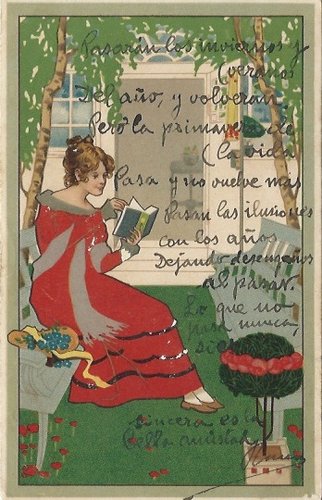 Pasarán los inviernos y
(veranos
Del año, y volveran
Pero la primavera de
(la vida
Pasa y no vuelve mas
Pasan las ilusiones
con los años
Dejando desengaños
al pasar.
Lo que no
pasa nunca,
sincera es la
bella amistad